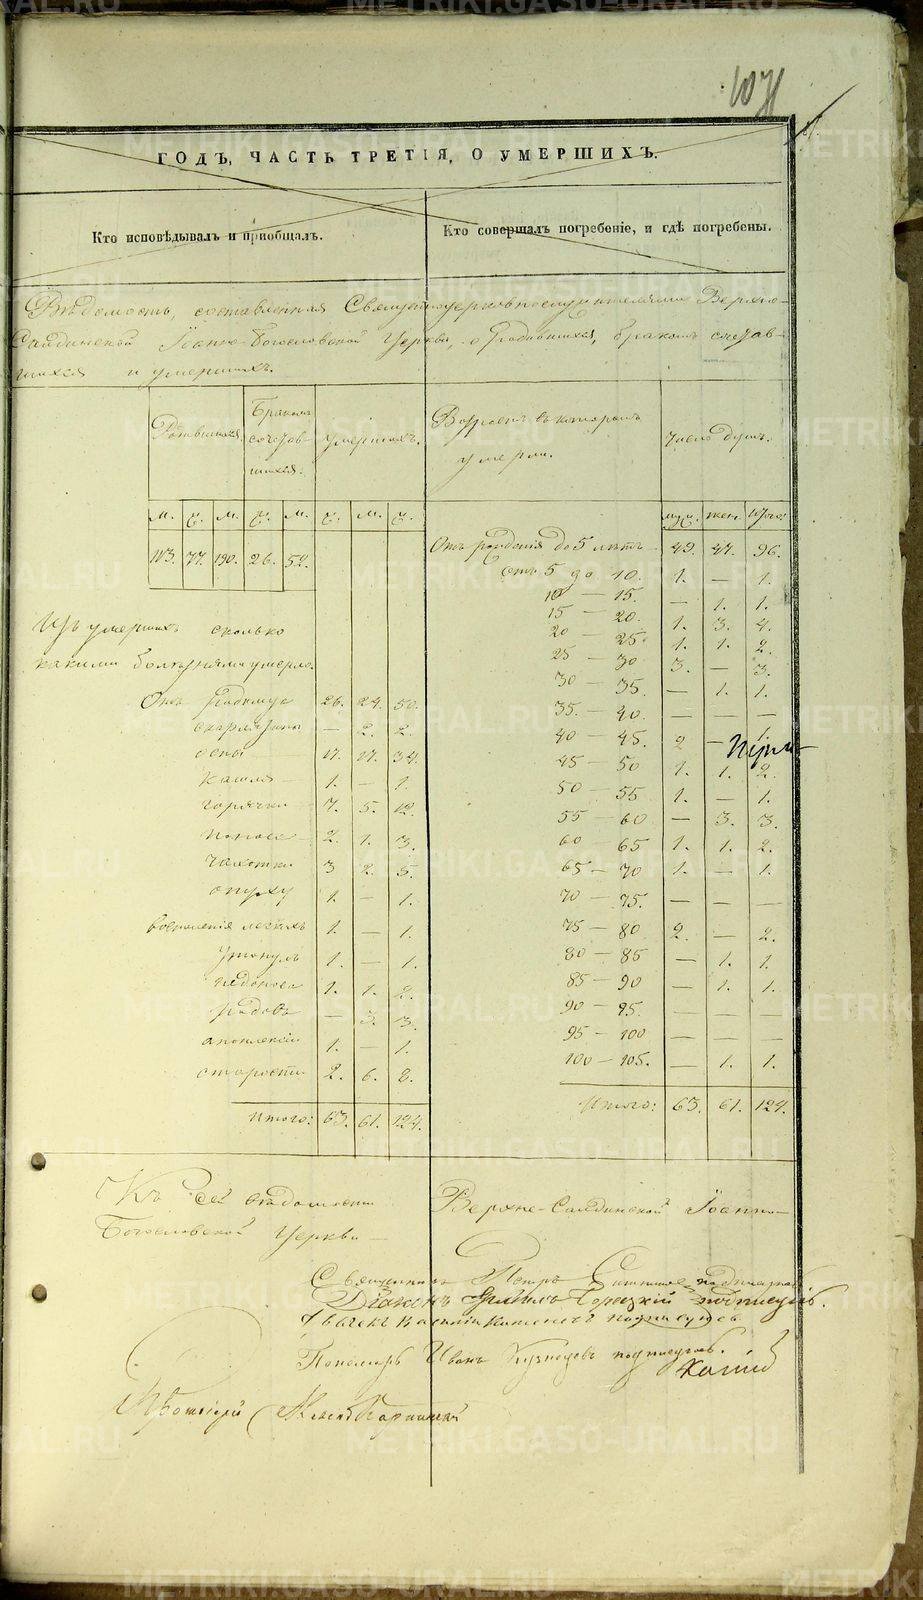 1071
ГОДЪ, ЧАСТЬ ТРЕТІЯ, О УМЕРШИХЪ.
Кто исповѣдывалъ и пріобщалъ.
Кто совершалъ погребеніе, и гдѣ погребены.
Вѣдомость, составленная Священноцерковнослужителями Верхне-
Салдинской Іоанно-Богословской Церкви, о Родившихся, бракомъ сочетав-
шихся и умершихъ.
Родившихся. Бракомъ сочетав- шихся. умершихъ.
м. ж. м. ч. м. ж. м. ж.
113. 77. 190. 26. 52.
Изъ умершихъ сколько
какими болѣзнями умерло.
Отъ Родимца 26. 24. 50.
скарлатины — 2. 2.
оспы 17. 17. 34.
кашля 1. — 1.
горячки 7. 5. 12.
поноса 2. 1. 3.
чахотки 3 2. 5.
опуху 1. — 1.
воспаленія легкихъ 1. — 1.
утонулъ 1. — 1.
недоноса 1. 1. 2.
родовъ — 3. 3.
апоплексіи 1. — 1.
старости 2. 6. 8.
Итого: 63. 61. 124.
Возрастъ въ которомъ умерли.
Число душъ.
муж. жен. Итого:
Отъ рожденія до 5 лѣтъ 49. 47. 96.
отъ 5 до 10. 1. — 1.
10 — 15. — 1. 1.
15 — 20. 1. 3. 4.
20 — 25. 1. 1. 2.
25 — 30 3. — 3.
30 — 35. — 1. 1.
35. — 40 — — —
40 — 45. 2 —
45 — 50 1. 1. 2.
50 — 55 1. — 1.
55 — 60 — 3. 3.
60 — 65 1. 1. 2.
65 — 70 1. — 1.
70 — 75. — — —
75 — 80 2. — 2.
80 — 85 — 1. 1.
85 — 90 — 1. 1.
90 — 95. — — —
95 — 100 — — —
100 — 105. — 1. 1.
Итого: 63. 61. 124.
Къ сей вѣдомости Верхне-Салдинской Іоанно-
Богословской Церкви
Священникъ Петръ подписался
Діаконъ подписуюсь.
Василій подписуюсь
Пономарь Иванъ Кузнецовъ подписуюсь.
Протоіерей
METRIKI.GASO-URAL.RU